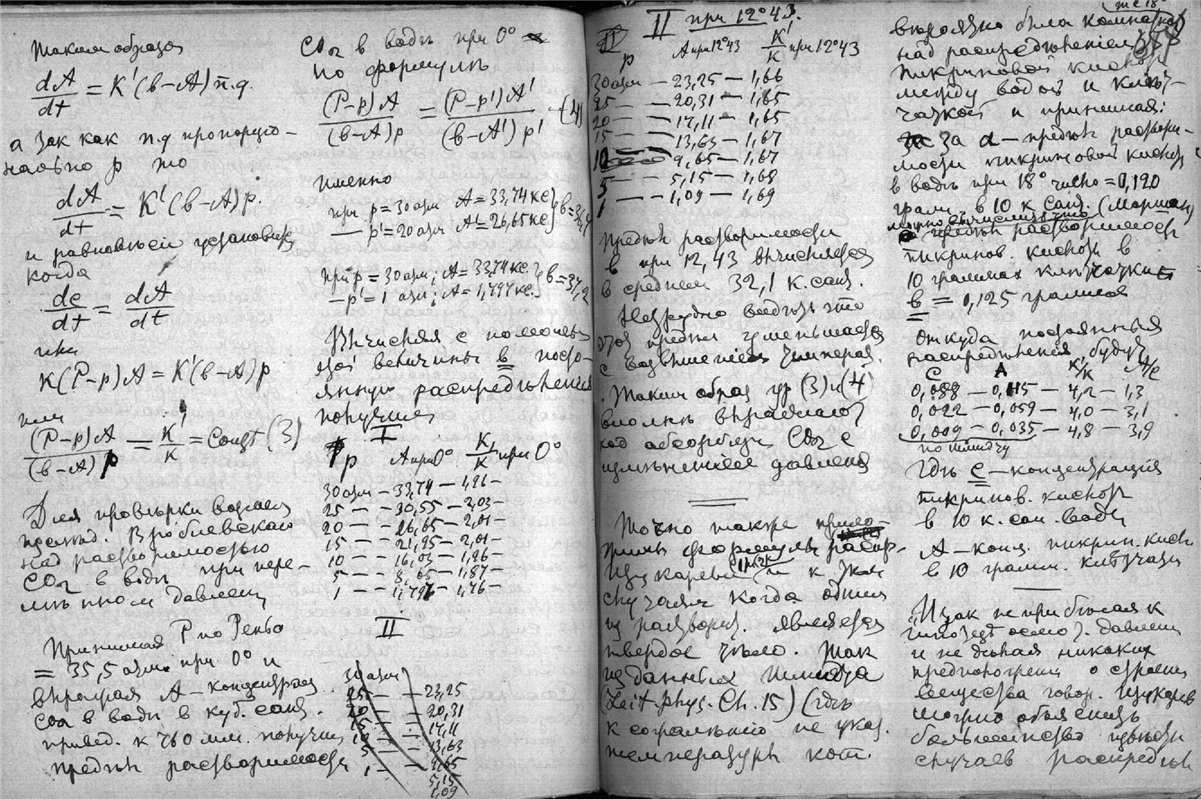 Таким образом
dA/dt = K'(в–A) п.д.
а так как п.д пропорцио-
нально p то
dA/dt = K'(в–A)p.
и равновесие установится
когда
dc/dt = dA/dt
или
K(P–p)A = K'(в–A)p
или
(P–p)A/(в–A)p = K'/K = Const (3)
Для проверки возьмем
над растворимостью
CO2 в воде при пере-
менном давлен
Принимая P по Реньо
= 35,5 атм. при 0° и
выражая A – концентрац.
CO2 в воде в куб. сант.
привед. к 760 мм. получим
предел растворимости
CO2 в воде при 0°
по формуле
(P–p)A/(в–A)p = (P–p')A'/(в–A')p' – (4)
именно
при p = 30 атм A = 33,74 кс
— p' = 20 атм A' = 26,65 кс
при p = 30 атм; A = 33,74 кс.
— p' = 1 атм; A' = 1,797 кс.
Вычисляя с помощью
этой величины в посто-
янную распределения
получим
I
p A при 0° K'/K при 0°
30 атм – 33,74 – 1,96 –
25 – – 30,55 – 2,03 –
20 – – 26,65 – 2,01 –
15 – – 21,95 – 2,01 –
10 – – 16,03 – 1,96 –
5 – – 8,65 – 1,87 –
1 – – 1,797 – 1,76 –
II
30 атм
25 – – 23,25
20 – – 20,31
– 17,11
– 13,63
– 9,65
5,15
1,09
II при 12°43.
p A при 12°43 K'/K при 12°43
30 атм – 23,25 – 1,66
25 – – 20,31 – 1,65
20 – – 17,11 – 1,65
15 – – 13,63 – 1,67
10 – 9,65 – 1,67
5 – – 5,15 – 1,68
1 – – 1,09 – 1,69
Предел растворимости
в при 12,43 вычисляется
в среднем 32,1 к. сант.
Нетрудно видеть что
этот предел уменьшается
с возвышением температ.
Таким образ ур (3) и (4)
вполне выражают
ход абсорбции CO2 с
изменением давления
Точно также прило-
жимы формулы распр-
и к тем
случаям когда один
из раствор. является
твердое тело. Так
из данных Шмидта
(Zeit. phys. Ch. 15) (где
к сожалению не указ.
температура кот.
вероятно была комнатной
над распределением
пикриновой кислоты
между водой и клет-
чаткой и принимая:
за a – предел раствори-
мости пикриновой кислоты
в воде при 18° число = 0,120
грам. в 10 к сант. (
предел растворимости
пикринов. кислоты в
10 граммах клетчатки
в = 0,125 граммов
откуда постоянная
распределения будут
C A K'/K A/C
0,088 – 0,115 – 4,2 – 1,3
0,022 – 0,059 – 4,0 – 3,1
0,009 – 0,035 – 4,8 – 3,9
по Шмидту
где C – концентрация
пикринов. кислоты
в 10 к. сан. воды
A – конц. пикрин. кисл
в 10 грамм. клетчатки
Итак не прибегая к
гипотезе осмот. давлен
и не делая никаких
предположений о строении
вещества
можно объяснить
большинство
случаев распределен